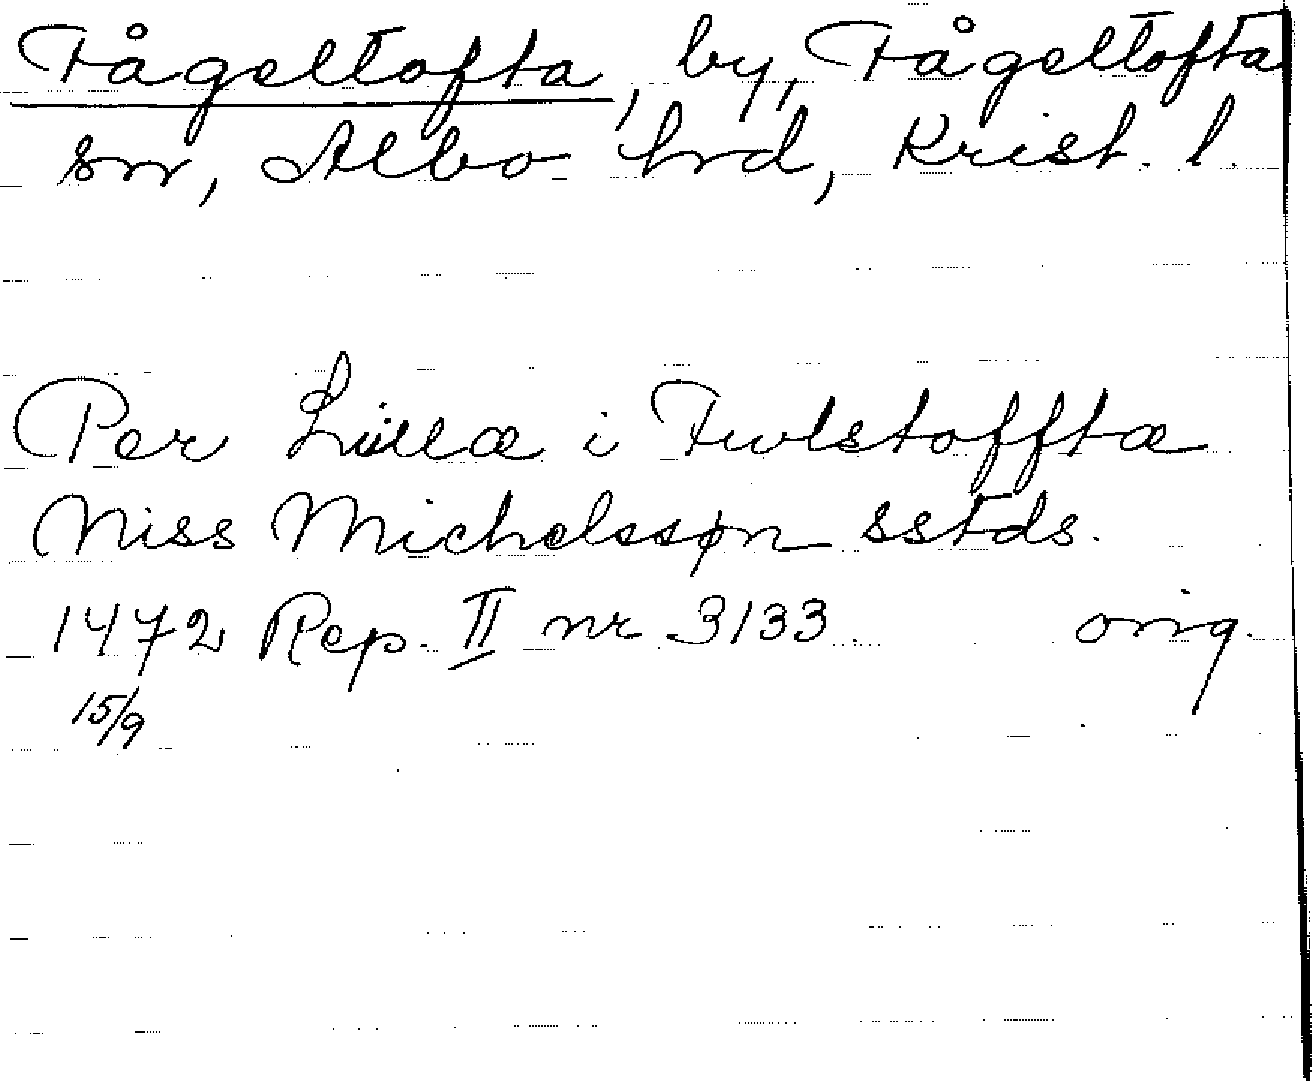 Fågeltofta, by, Fågeltofta
sn, Albo hrd, Krist. l.
Per Lillæ i Fwlstofftæ
Niss Michelssøn sstds.
1472 Rep. II nr 3133 orig.
15/9